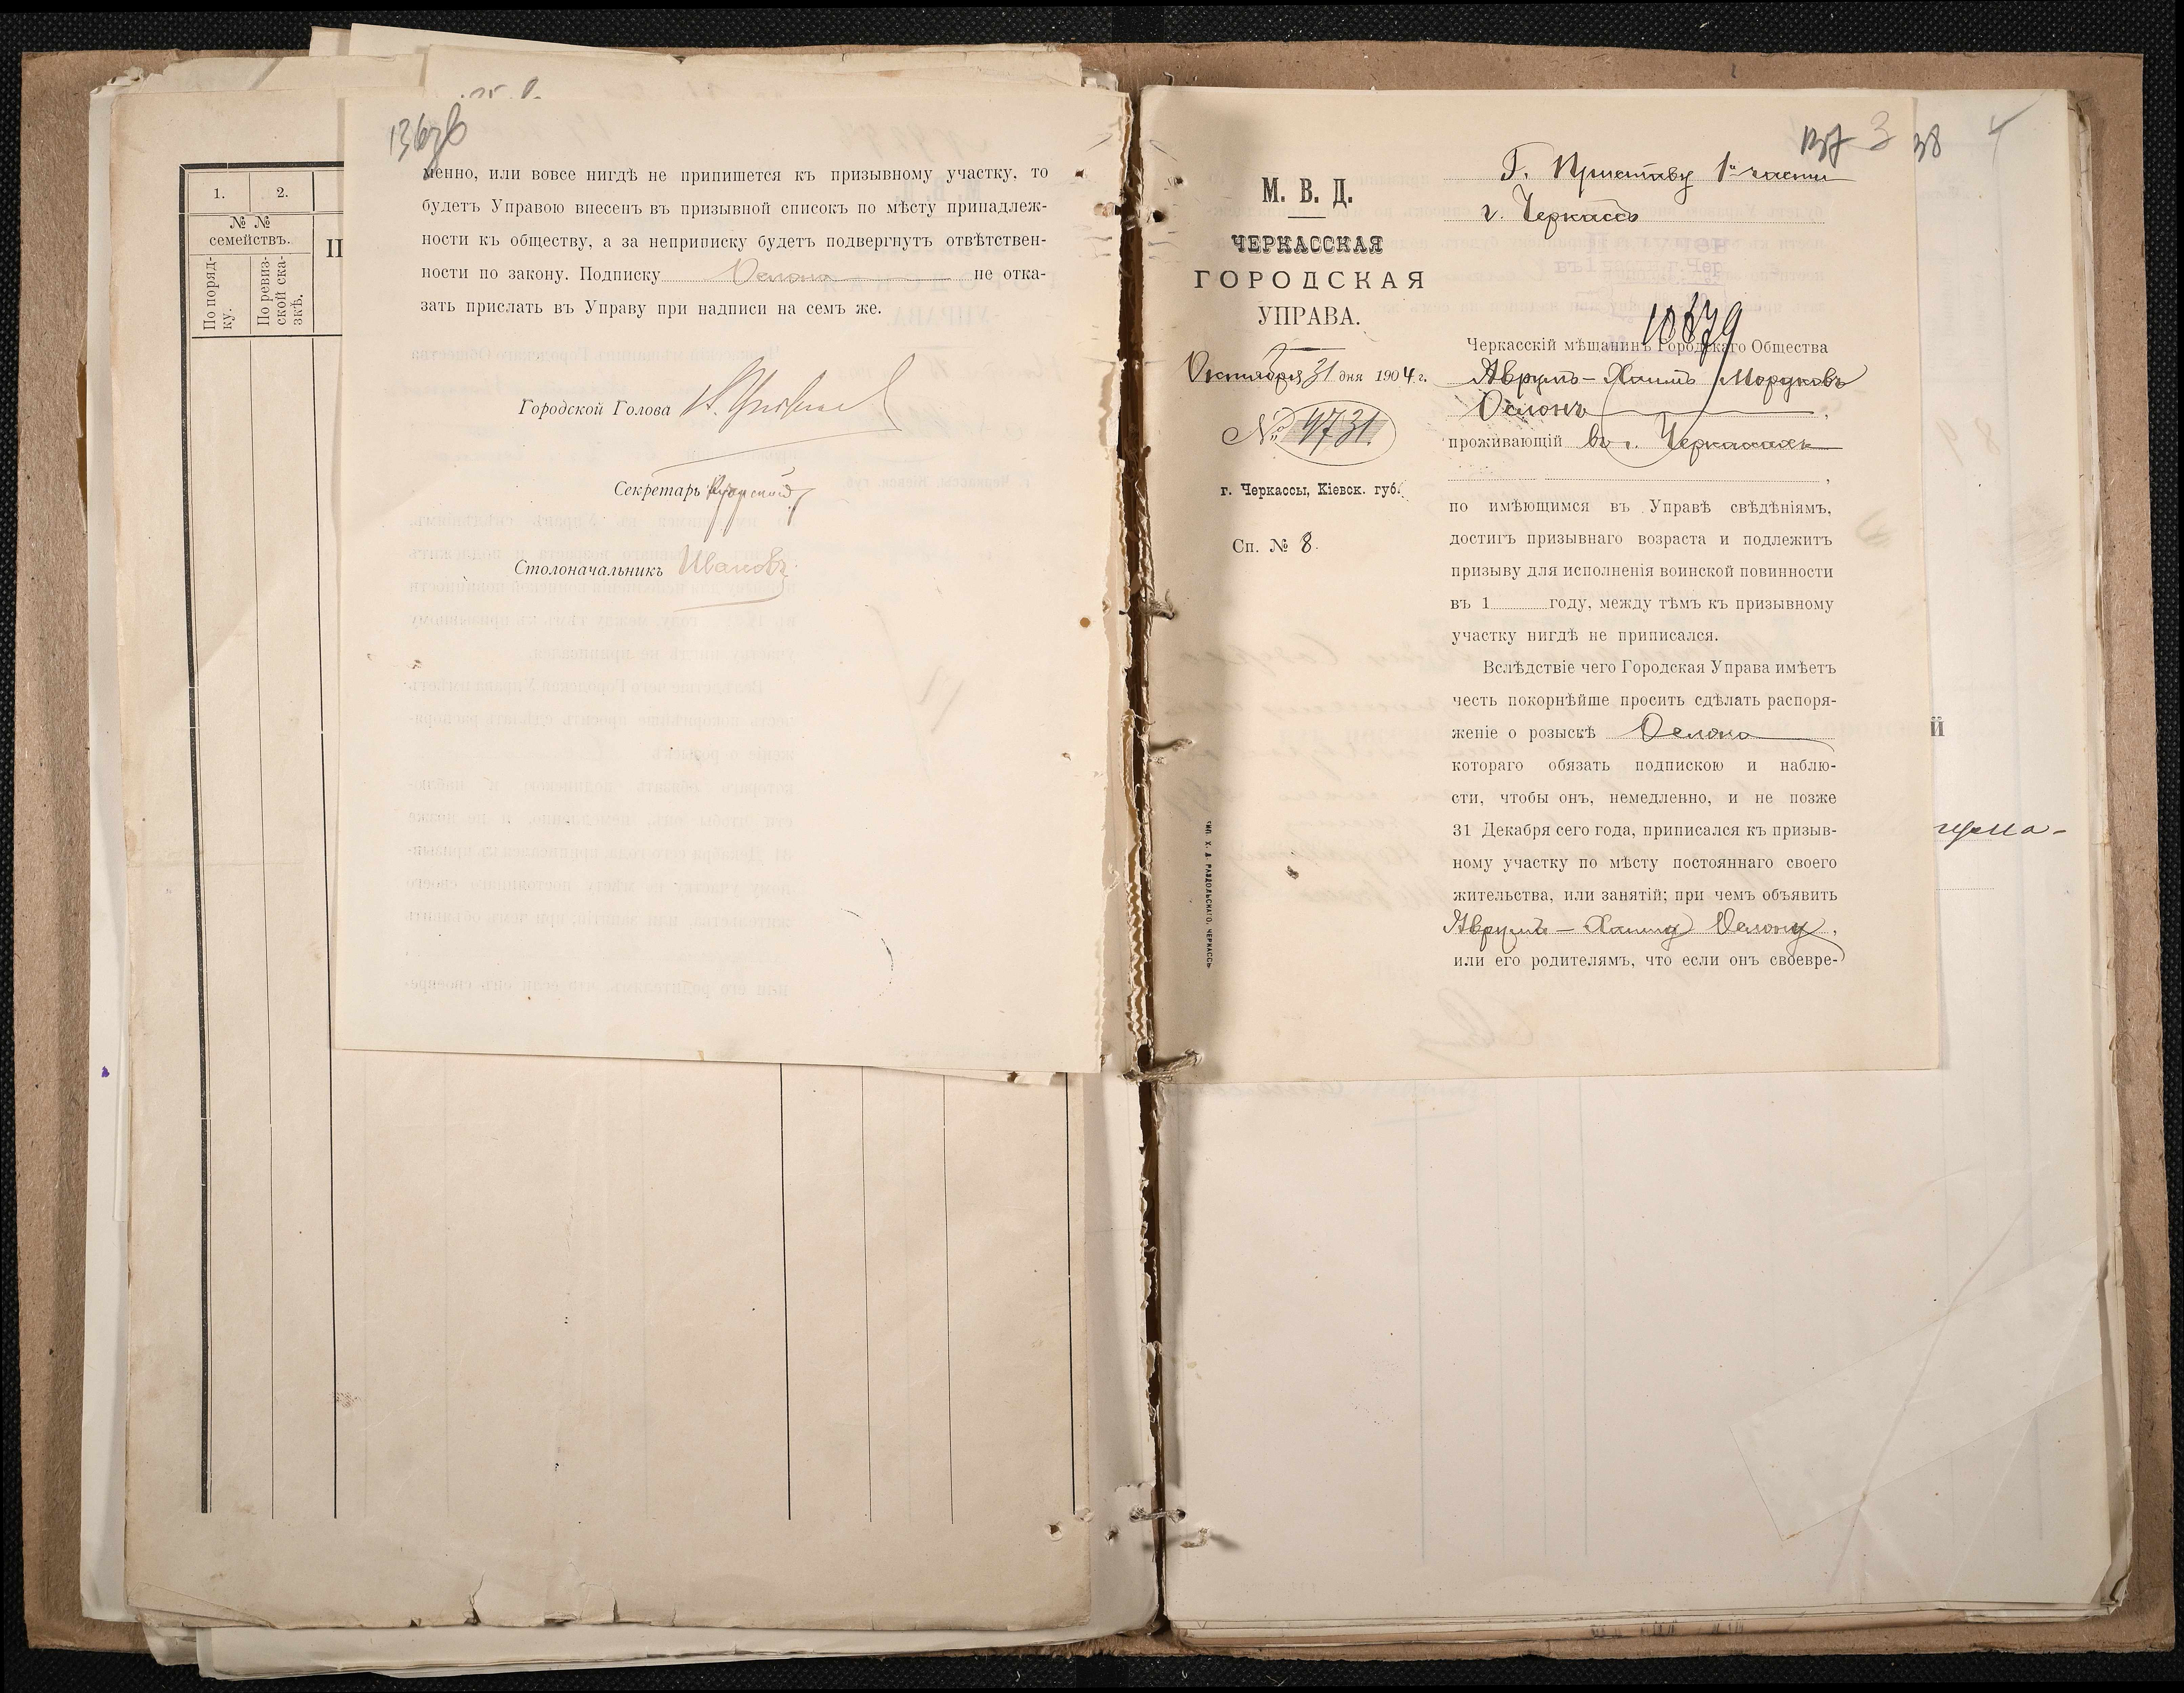 136 об
менно, или вовсе нигдѣ не припишется къ призывному участку, то
будетъ Управою внесенъ въ призывной списокъ по мѣсту принадлеж-
ности къ обществу, а за неприписку будетъ подвергнутъ отвѣтствен-
ности по закону. Подписку Ослона не отка-
зать прислать въ Управу при надписи на семъ же.
Городской Голова
Секретарь
Столоначальникъ Ивановъ
1. 2.
№ №
семействъ.
По поряд-
ку.
По ревиз-
ской ска-
зкѣ.
137 3 38 4
М. В. Д.
ЧЕРКАССКАЯ
ГОРОДСКАЯ
УПРАВА.
Октября 31 дня 1904 г.
№ 9731.
г. Черкассы, Кіевск. губ.
Сп. № 8.
Г. Приставу 1й части
г. Черкассъ
10879
Черкасскій мѣщанинъ Городскаго Общества
Аврумъ-Хаимъ Мордковъ
Ослонъ,
проживающій въ г. Черкассахъ
по имѣющимся въ Управѣ свѣдѣніямъ,
достигъ призывнаго возраста и подлежитъ
призыву для исполненія воинской повинности
въ 1 году, между тѣмъ къ призывному
участку нигдѣ не приписался.
Вслѣдствіе чего Городская Управа имѣетъ
честь покорнѣйше просить сдѣлать распоря-
женіе о розыскѣ Ослона
котораго обязать подпискою и наблю-
сти, чтобы онъ, немедленно, и не позже
31 Декабря сего года, приписался къ призыв-
ному участку по мѣсту постояннаго своего
жительства, или занятій; при чемъ объявить
Аврумъ-Хаиму Ослону,
или его родителямъ, что если онъ своевре-
ТИП. Х. А. РАЗДОЛЬСКАГО, ЧЕРКАССЪ